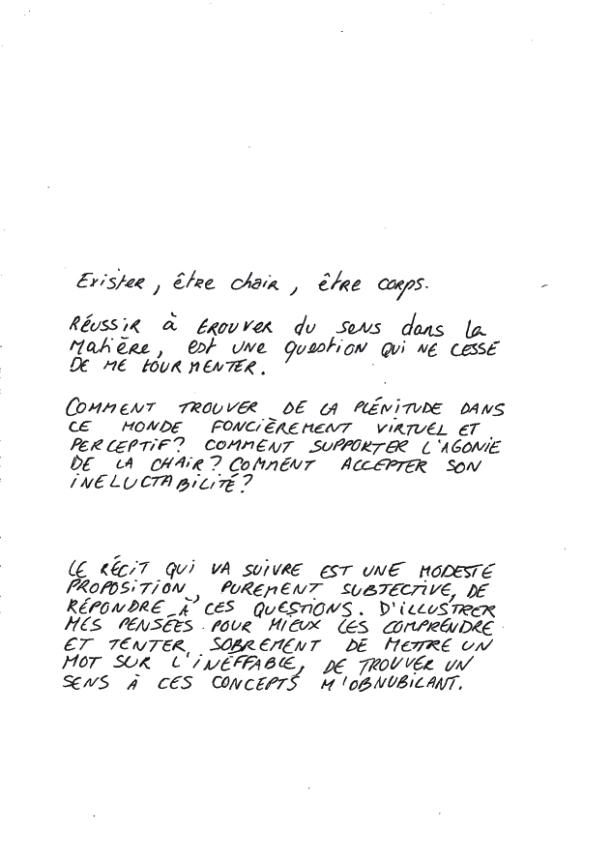 Exister, être chair, être corps.
RÉUSSIR à trouver du sens dans la
Matière, est une question qui ne cesse
DE ME TOURMENTER.
COMMENT TROUVER DE LA PLÉNITUDE DANS
CE MONDE FONCIÈREMENT VIRTUEL ET
PERCEPTIF? COMMENT SUPPORTER L'AGONIE
DE LA CHAIR? COMMENT ACCEPTER SON
INELUCTABILITÉ?
LE RÉCIT QUI VA SUIVRE EST UNE MODESTE
PROPOSITION, PUREMENT SUBJECTIVE, DE
RÉPONDRE À CES QUESTIONS. D'ILLUSTRER
MES PENSÉES POUR MIEUX LES COMPRENDRE
ET TENTER, SOBREMENT DE METTRE UN
MOT SUR L'INEFFABLE, DE TROUVER UN
SENS À CES CONCEPTS M'OBNUBILANT.